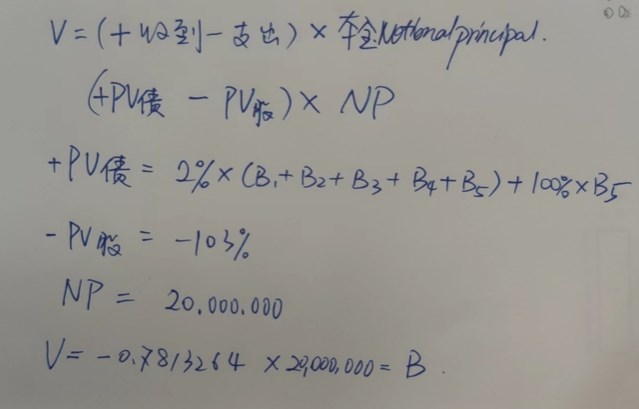 V = (+收到 - 支出) × 本金Notional principal.
(+PV债 - PV股) × NP
+PV债 = 2% × (B₁ + B₂ + B₃ + B₄ + B₅) + 100% × B₅
- PV股 = -103%
NP = 20.000.000
V = -0.7813264 × 20,000,000 = B.